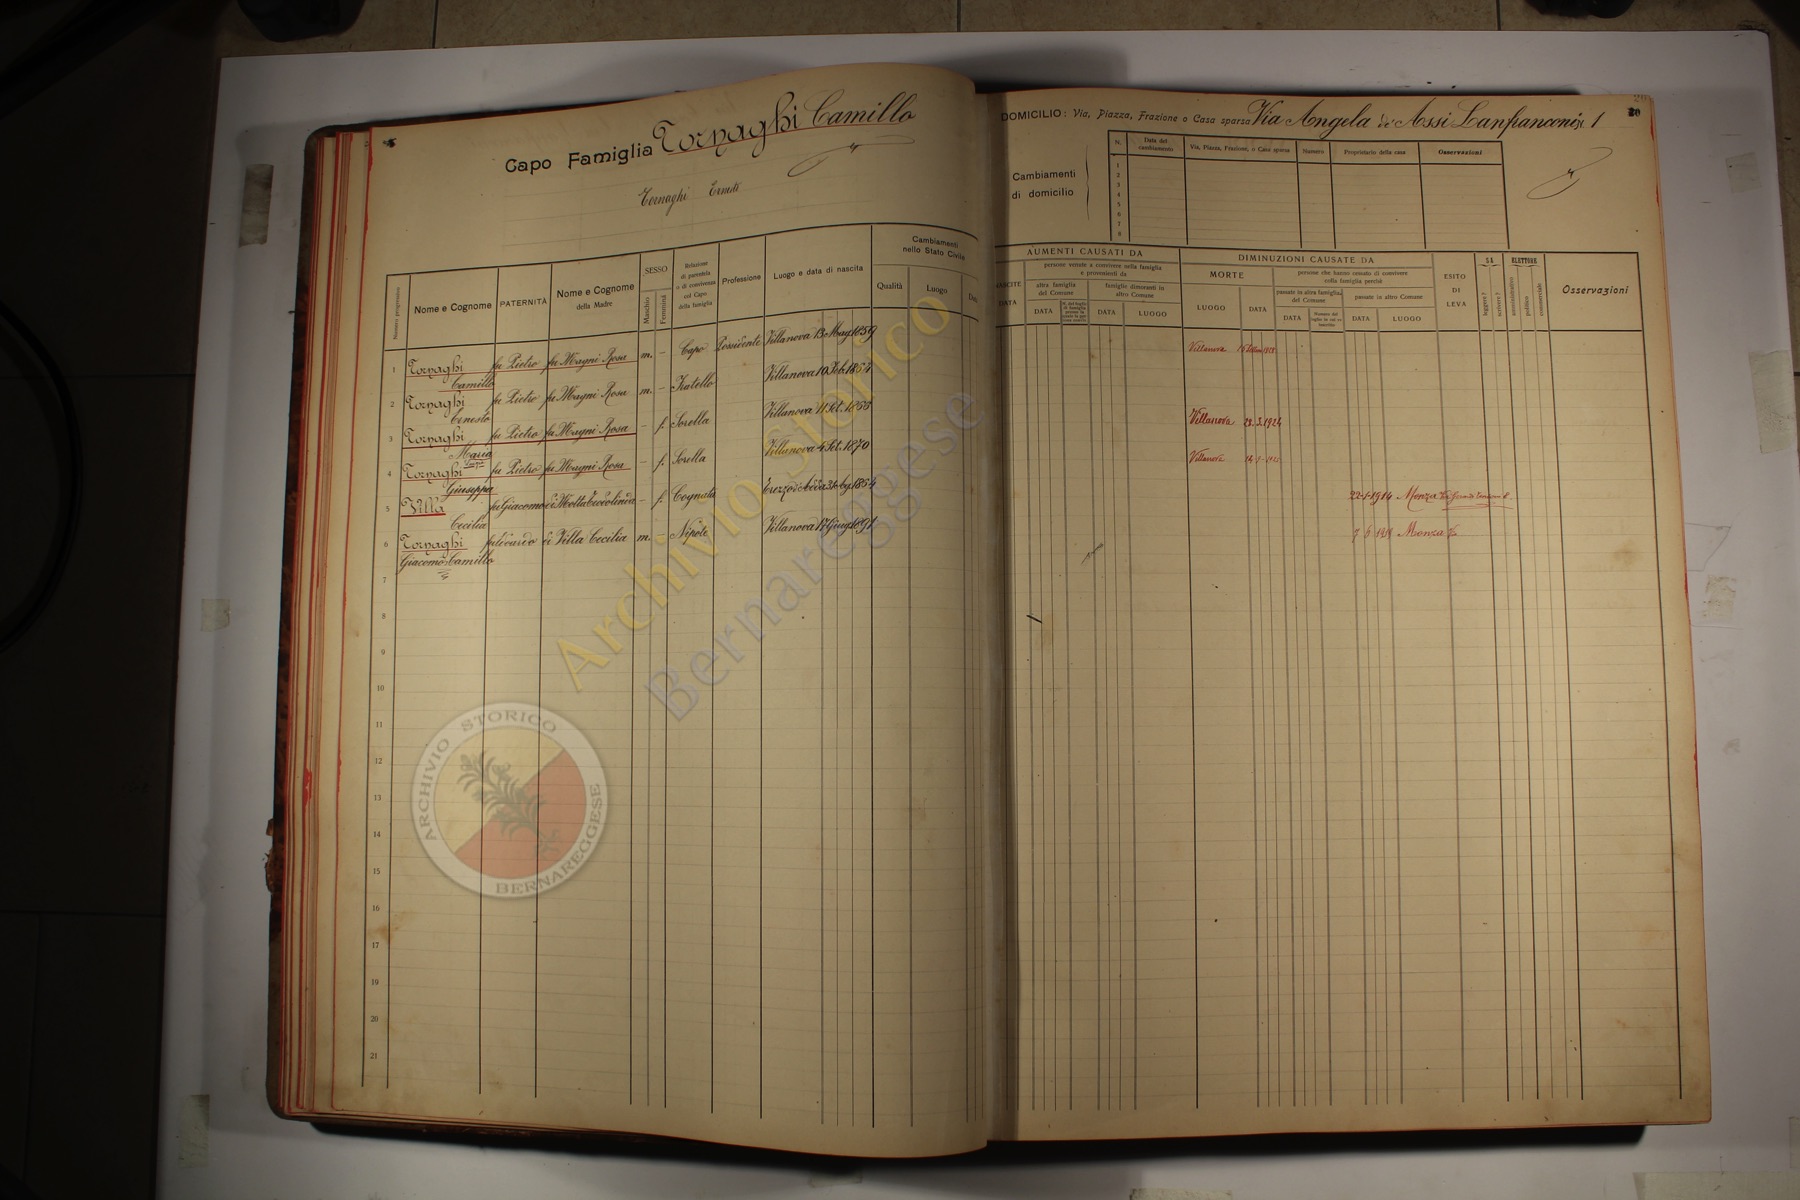 Capo Famiglia Tornaghi Camillo
Tornaghi
Numero progressivo
Nome e Cognome
PATERNITÀ
Nome e Cognome
della Madre
SESSO
Maschio
Femmina
Relazione
di parentela
o di convivenza
col Capo
della famiglia
Professione
Luogo e data di nascita
Cambiamenti
nello Stato Civile
Qualità
Luogo
Data
1 Tornaghi fu Pietro fu Magni Rosa m. – Capo Possidente Villanova 13 Mag. 1859
Camillo
2 Tornaghi fu Pietro fu Magni Rosa m. – Fratello Villanova 10 Feb.
Ernesto
3 Tornaghi fu Pietro fu Magni Rosa – f. Sorella Villanova 11 Set.
Maria
4 Tornaghi fu Pietro fu Magni Rosa – f. Sorella Villanova 4 Set. 1870
Giuseppa
5 Villa fu Giacomo di Motta – f. Cognata Trezzo d'Adda
Cecilia
6 Tornaghi fu Edoardo di Villa Cecilia m. – Nipote Villanova 17 Giug. 1891
Giacomo Camillo
7
8
9
10
11
12
13
14
15
16
17
18
19
20
21
20
DOMICILIO: Via, Piazza, Frazione o Casa sparsa Via Angela de' Assi Lanfranconi N. 1
Cambiamenti
di domicilio
N.
Data del
cambiamento
Via, Piazza, Frazione, o Casa sparsa
Numero
Proprietario della casa
Osservazioni
1
2
3
4
5
6
7
8
AUMENTI CAUSATI DA
NASCITE
DATA
persone venute a convivere nella famiglia
e provenienti da
altra famiglia
del Comune
DATA
famiglie dimoranti in
altro Comune
DATA
LUOGO
DIMINUZIONI CAUSATE DA
MORTE
LUOGO
DATA
persone che hanno cessato di convivere
colla famiglia perchè
passate in altra famiglia
del Comune
DATA
passate in altro Comune
DATA
LUOGO
ESITO
DI
LEVA
SA
leggere?
scrivere?
ELETTORE
amministrativo
politico
commerciale
Osservazioni
Villanova
Villanova 23.3.1924
Villanova
22-1-1914 Monza
7 6 1919 Monza
Archivio Storico
Bernareggese
ARCHIVIO STORICO
BERNAREGGESE